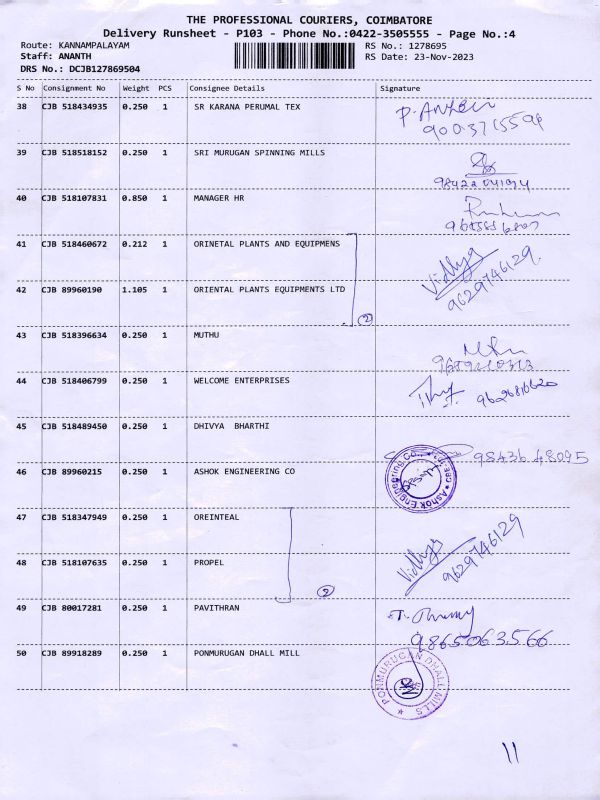 THE PROFESSIONAL COURIERS, COIMBATORE
Delivery Runsheet - P103 - Phone No.:0422-3505555 - Page No.:4
Route: KANNAMPALAYAM RS No.: 1278695
Staff: ANANTH RS Date: 23-Nov-2023
DRS No.: DCJB127869504
S No Consignment No Weight PCS Consignee Details Signature
38 CJB 518434935 0.250 1 SR KARANA PERUMAL TEX
9003715594
39 CJB 518518152 0.250 1 SRI MURUGAN SPINNING MILLS
40 CJB 518107831 0.850 1 MANAGER HR
41 CJB 518460672 0.212 1 ORINETAL PLANTS AND EQUIPMENS Vidhya
9629746129.
42 CJB 89960190 1.105 1 ORIENTAL PLANTS EQUIPMENTS LTD
2
43 CJB 518396634 0.250 1 MUTHU
44 CJB 518406799 0.250 1 WELCOME ENTERPRISES
45 CJB 518489450 0.250 1 DHIVYA BHARTHI
98436 48095
46 CJB 89960215 0.250 1 ASHOK ENGINEERING CO Ashok Engineering Co., CBE
47 CJB 518347949 0.250 1 OREINTEAL Vidhya
9629746129
48 CJB 518107635 0.250 1 PROPEL
2
49 CJB 80017281 0.250 1 PAVITHRAN
9865063566
50 CJB 89918289 0.250 1 PONMURUGAN DHALL MILL PONMURUGAN DHALL MILLS
11